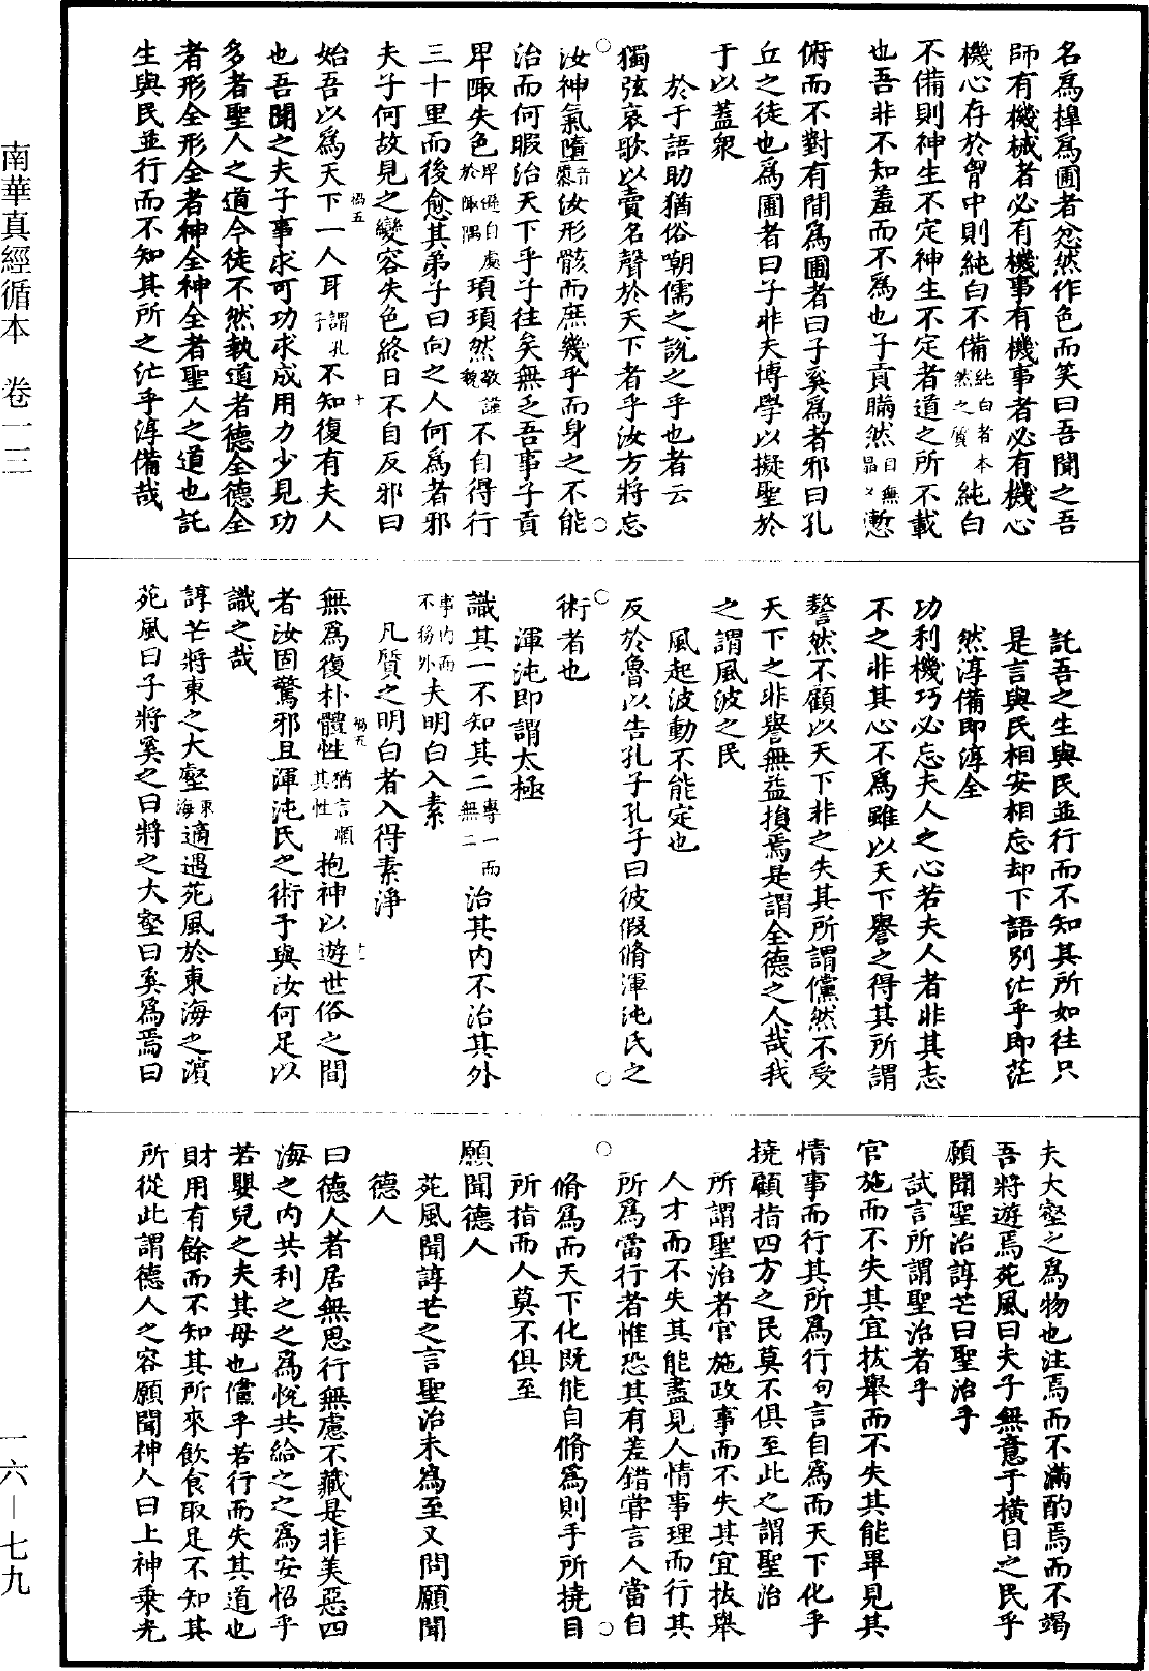 名爲橰爲圃者忿然作色而笑曰吾聞之吾
師有機械者必有機事有機事者必有機心
機心存於胷中則純白不備純白者本然之質純白
不備則神生不定神生不定者道之所不載
也吾非不知羞而不爲也子貢瞞然目無晶々慙
俯而不對有間爲圃者曰子奚爲者邪曰孔
丘之徒也爲圃者曰子非夫博學以擬聖於
于以蓋衆
於于語助猶俗嘲儒之說之乎也者云
獨弦哀歌以賣名聲於天下者乎汝方將忘
汝神氣墮音隳汝形骸而庶幾乎而身之不能
治而何暇治天下乎子往矣無乏吾事子貢
卑陬失色卑避自處於陬隅頊頊然敬謹貌不自得行
三十里而後愈其弟子曰向之人何爲者邪
夫子何故見之變容失色終日不自反邪曰
始吾以爲天下一人耳謂孔子不知復有夫人
也吾聞之夫子事求可功求成用力少見功
多者聖人之道今徒不然執道者德全德全
者形全形全者神全神全者聖人之道也託
生與民並行而不知其所之汒乎淳備哉
託吾之生與民並行而不知其所如往只
是言與民相安相忘却下語別汒乎即茫
然淳備即淳全
功利機巧必忘夫人之心若夫人者非其志
不之非其心不爲雖以天下譽之得其所謂
謷然不顧以天下非之失其所謂儻然不受
天下之非譽無益損焉是謂全德之人哉我
之謂風波之民
風起波動不能定也
反於魯以告孔子孔子曰彼假脩渾沌氏之
術者也
渾沌即謂太極
識其一不知其二專一而無二治其內不治其外
事內而不務外夫明白入素
凡質之明白者入得素淨
無爲復朴體性猶言順其性抱神以遊世俗之間
者汝固驚邪且渾沌氏之術予與汝何足以
識之哉
諄芒將東之大壑東海適遇苑風於東海之濵
苑風曰子將奚之曰將之大壑曰奚爲焉曰
夫大壑之爲物也注焉而不滿酌焉而不竭
吾將遊焉苑風曰夫子無意于橫目之民乎
願聞聖治諄芒曰聖治乎
試言所謂聖治者乎
官施而不失其宜拔舉而不失其能畢見其
情事而行其所爲行句言自爲而天下化手
撓顧指四方之民莫不俱至此之謂聖治
所謂聖治者官施政事而不失其宜拔舉
人才而不失其能盡見人情事理而行其
所爲當行者惟恐其有差錯嘗言人當自
脩爲而天下化既能自脩爲則手所撓目
所指而人莫不俱至
願聞德人
苑風聞諄芒之言聖治未爲至又問願聞
德人
曰德人者居無思行無慮不藏是非美惡四
海之內共利之之爲悅共給之之爲安怊乎
若嬰兒之失其母也儻乎若行而失其道也
財用有餘而不知其所來飲食取足不知其
所從此謂德人之容願聞神人曰上神乘光
南華真經循本　卷一三
一六—七九